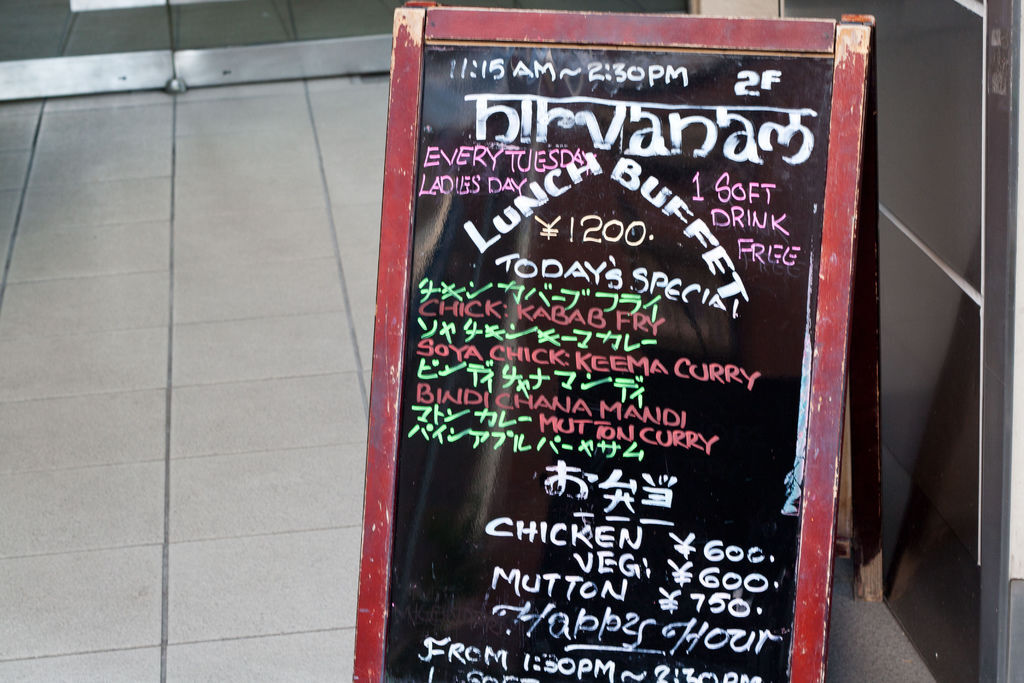 11:15 AM~2:30PM 2F
nirvanam
EVERY TUESDAY
LADIES DAY
LUNCH BUFFET
1 SOFT
DRINK
FREE
¥1200.
TODAY'S SPECIAL
チキン カバーブ フライ
CHICK: KABAB FRY
ソヤ チキン キーマ カレー
SOYA CHICK: KEEMA CURRY
ビンディ チャナ マンディ
BINDI CHANA MANDI
マトン カレー MUTTON CURRY
パインアプル パーヤサム
お弁当
CHICKEN ¥600.
VEG: ¥600.
MUTTON ¥750.
Happy Hour
FROM 1:30PM~2:30PM
1 SOFT